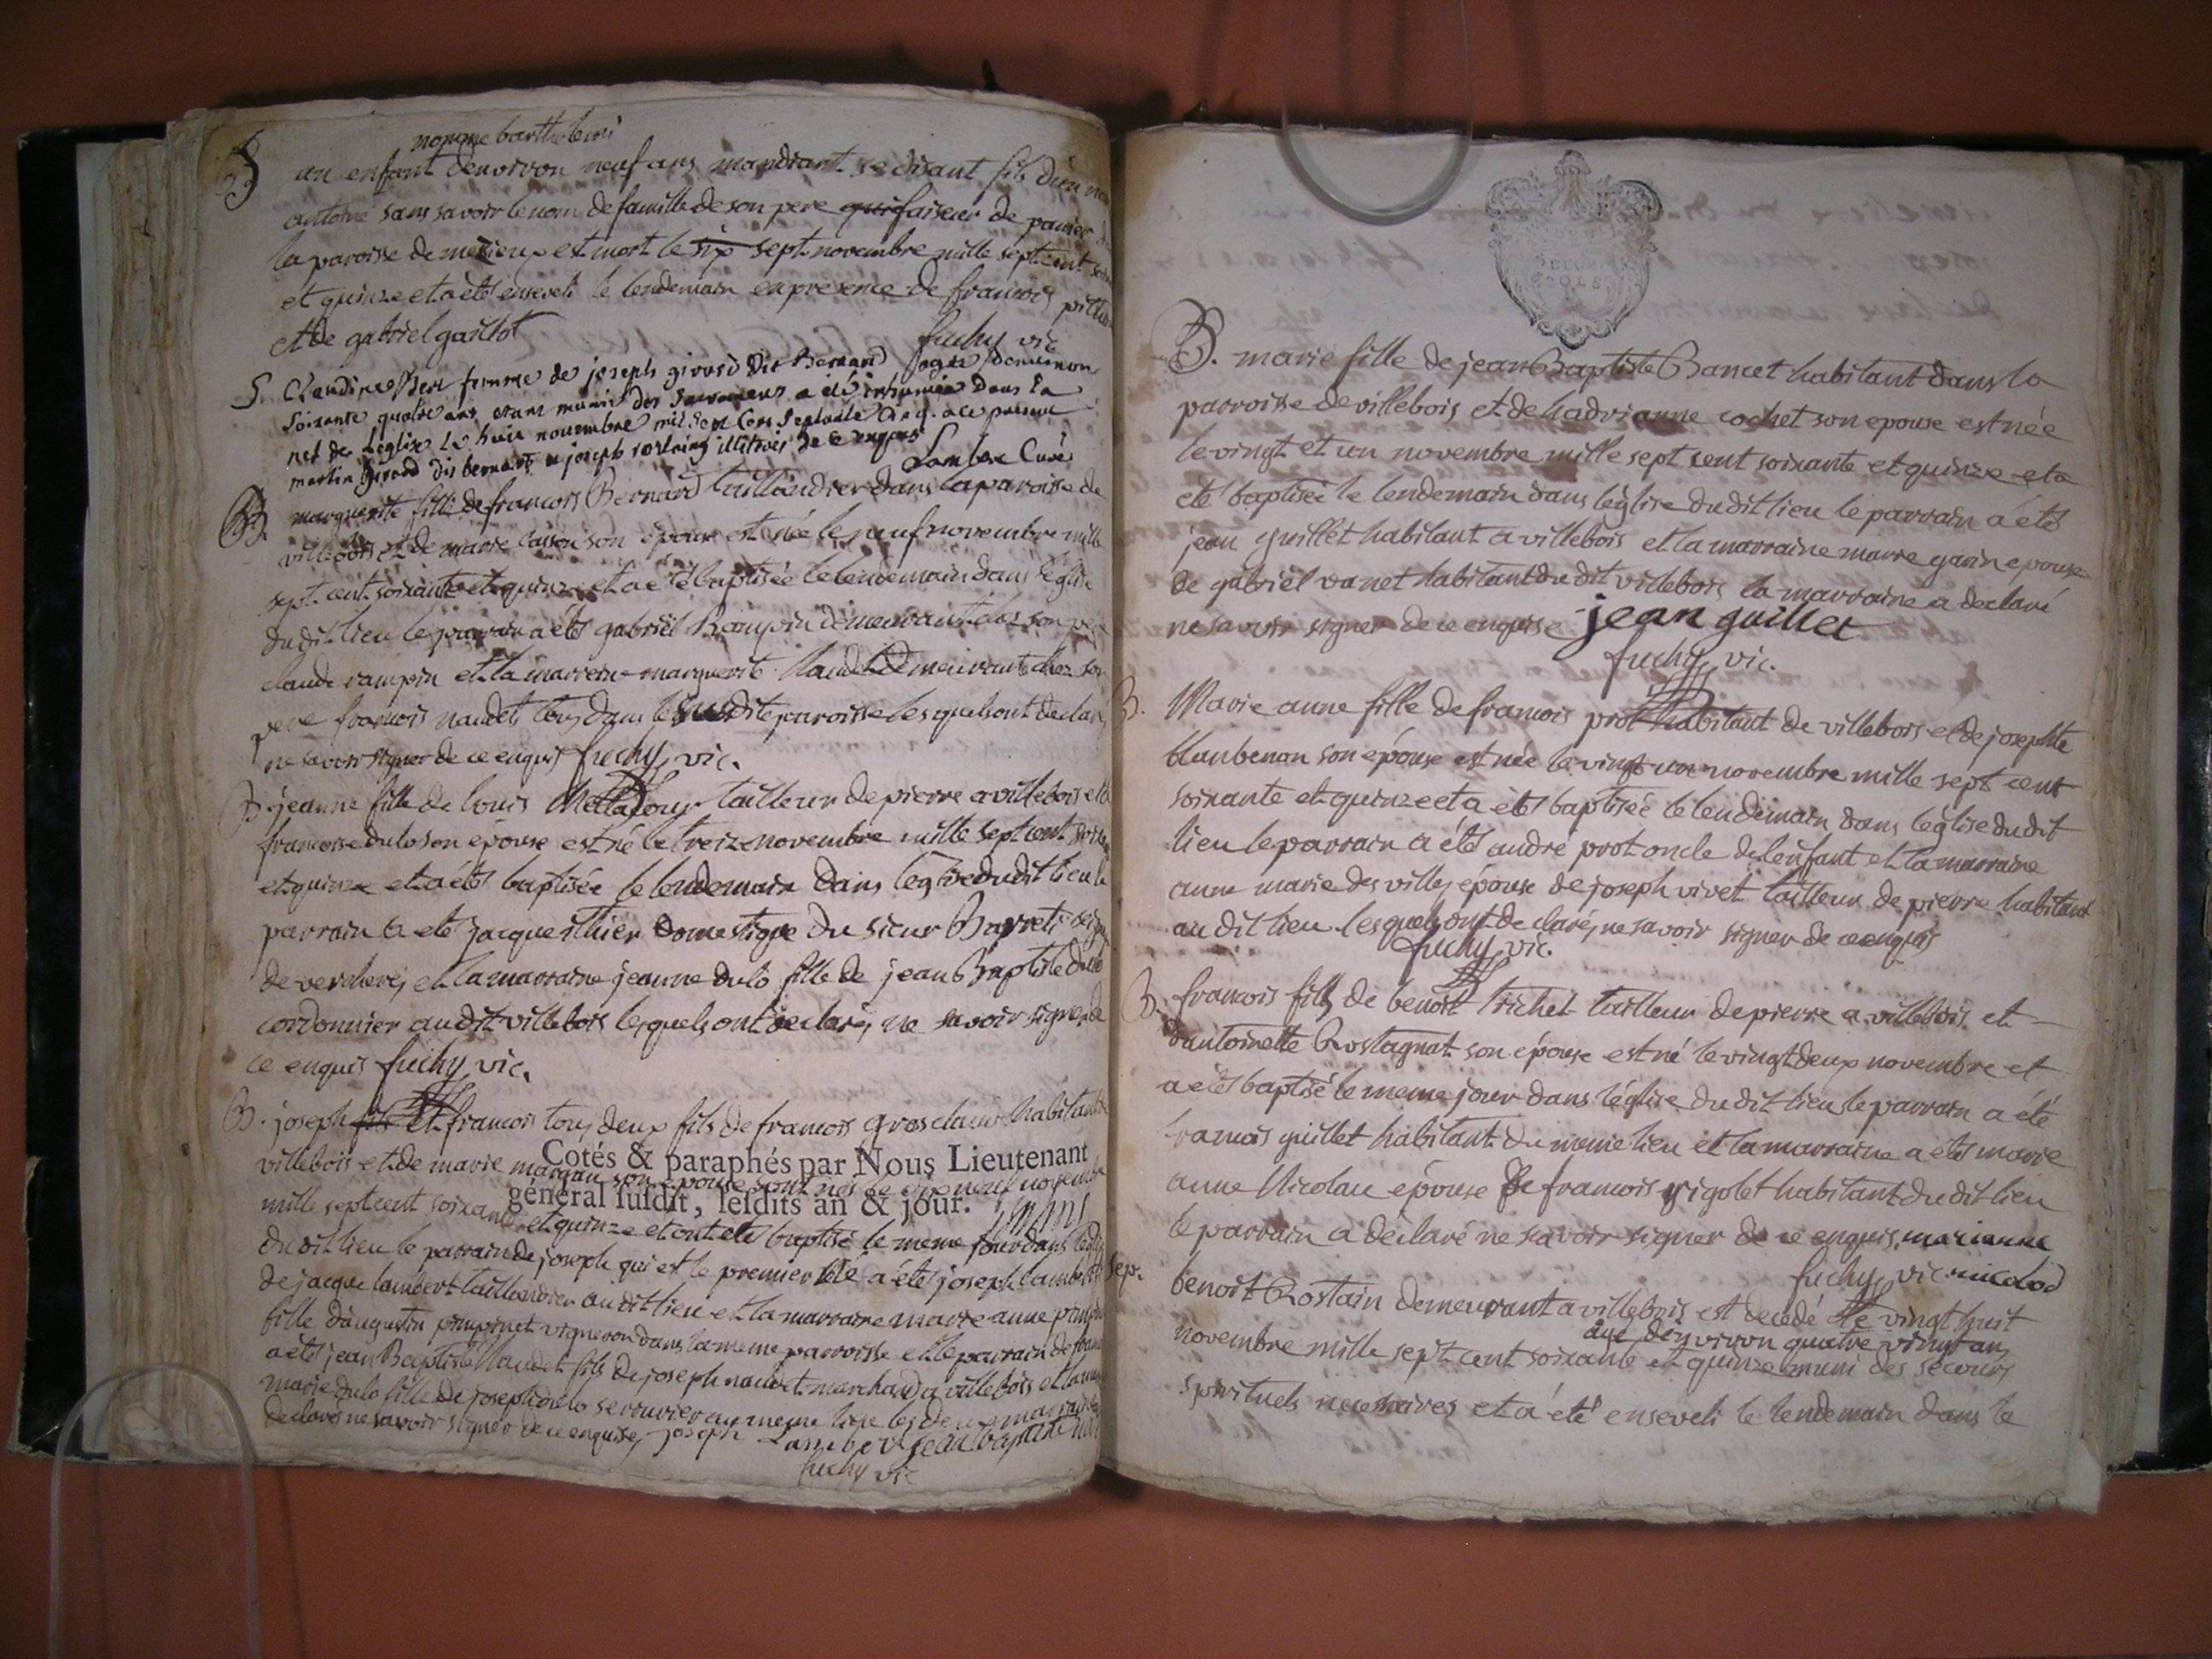 nomme barthelemi
S un enfant denviron neuf ans mandiant se disant fils d'un
antoine sans savoir le nom de famille de son pere qui faiseur de panier
la paroisse de merieux est mort le six sept novembre mille sept cent
et quinze et a été enseveli le lendemain en presence de francois
et de gabriel gaillot fuchy vic
S. Claudine femme de joseph girord dit Bernard agée denviron
soixante quatre ans etant munie des sacremens a été inhumée dans la
de Leglise le huit novembre mil sept cens septante cinq
martin girord dit bernard et joseph illitérés de ce enquis
Lambert Curé
B. marguerite fille de francois Bernard taillandier dans la paroisse de
villebois et de marie casson son epouse est née le neuf novembre mille
sept cent soixante et quinze et a été baptisée le lendemain dans l'église
du dit lieu le parrain a étés gabriel Rampin demeurant chez son pere
claude rampin et la marreine marguerite Naudet demeurante chez son
pere francois naudet tous dans la susdite paroisse lesquels ont declarés
ne savoir signer de ce enquis fuchy vic.
B. jeanne fille de louis tailleur de pierre a villebois et
francoise dulo son épouse est né le treize novembre mille sept cent
et quinze et a étés baptisée le lendemain dans l'église du dit lieu le
parrain a eté jacque ithier domestique du sieur Barreti
de vercheres et la marraine jeanne dulo fille de jean Baptiste dulo
cordonnier au dit villebois lesquels ont declarés ne savoir signer de
ce enquis fuchy vic.
B. joseph fils et francois tous deux fils de francois gros claude habitant
villebois et de marie son epouse sont nés le dix neuf novembre
Cotés & paraphés par Nous Lieutenant
général susdit, lesdits an & jour.
mille sept cent soixante et quinze et ont etés baptisé le meme jour dans
du dit lieu le parrain de joseph qui est le premier né a étés joseph lambert
de jacque lambert taillandier au dit lieu et la marraine marie anne
fille d'augustin pimpinet vigneron dans la meme parroisse et le parrain de
a étés jean Baptiste Naudet fils de joseph naudet marchand a villebois et la
marie dulo fille de joseph dulo serrurier au meme lieu les deux marraines
declarés ne savoir signer de ce enquises joseph Lambert jean baptiste
fuchy vic
B. marie fille de jean Baptiste Bancet habitant dans la
parroisse de villebois et de hadrianne cochet son epouse est née
le vingt et un novembre mille sept cent soixante et quinze et a
eté baptisée le lendemain dans l'église du dit lieu le parrain a étés
jean guillet habitant a villebois et la marraine marie garin epouse
de gabriel vanet habitant du dit villebois la marraine a declaré
ne savoir signer de ce enquise jean guillet
fuchy vic.
B. Marie anne fille de francois prot habitant de villebois et de josephte
blanbenon son épouse est née le vingt un novembre mille sept cent
soixante et quinze et a étés baptisée le lendemain dans l'église du dit
lieu le parrain a étés andré prot oncle de lenfant et la marraine
anne marie des villes épouse de joseph vivet tailleur de pierre habitant
au dit lieu lesquels ont declarés ne savoir signer de ce enquis
fuchy vic.
B. francois fils de benoit trichet tailleur de pierre a villebois et
dantoinette Rostagnat son épouse est né le vingt deux novembre et
a étés baptisé le meme jour dans l'église du dit lieu le parrain a été
francois guillet habitant du meme lieu et la marraine a étés marie
anne Nicolau épouse de francois rigolet habitant du dit lieu
le parrain a déclaré ne savoir signer de ce enquis marianne
fuchy vic nicolod
Sep. benoit Rostain demeurant a villebois est decedé le vingt huit
agé denviron quatre vingt ans
novembre mille sept cent soixante et quinze muni des secours
spirituels necessaires et a été enseveli le lendemain dans le